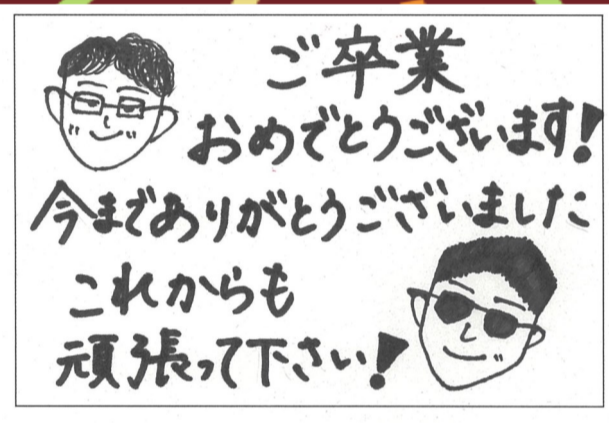 ご卒業
おめでとうございます!
今までありがとうございました
これからも
頑張って下さい!